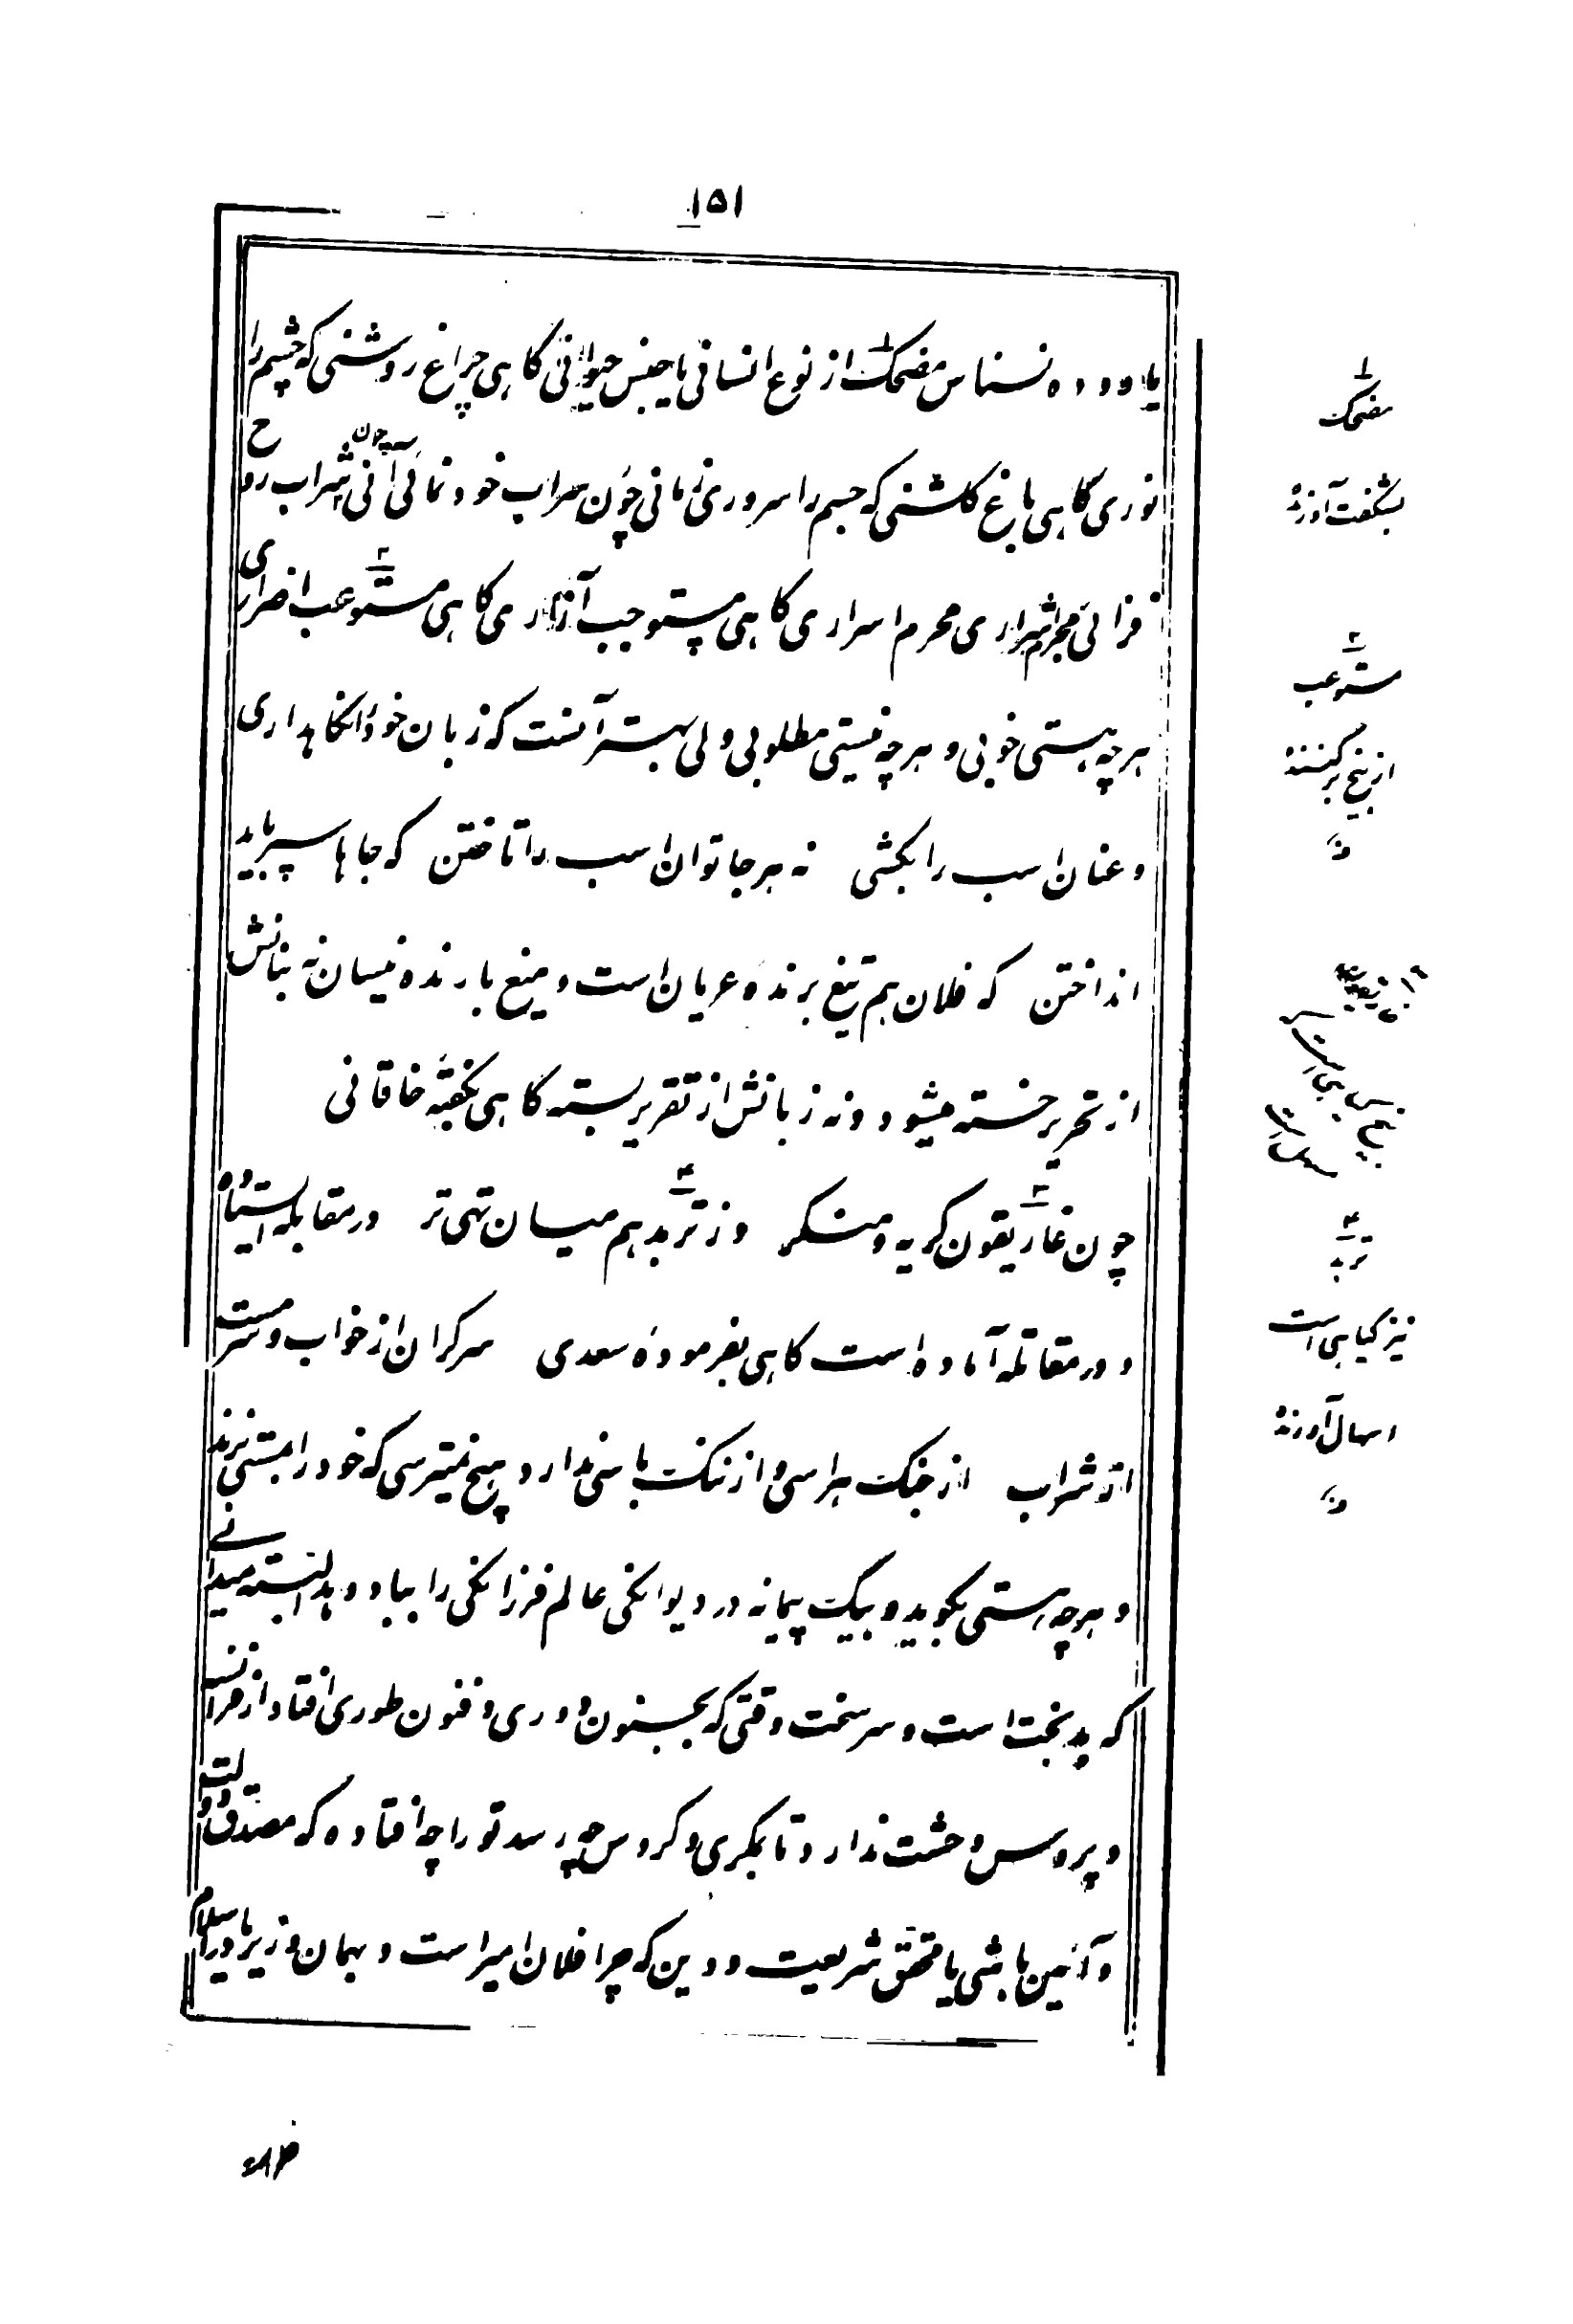 ۱۵۱
یا دوده نسناس مضحک از نوع انسانی یا جنس حیوانی کاهی چراغ روشنی که چشم را
نوری کاهی باغ کلشنی که جسم را سروری زمانی چون سراب خودنمائی آنی چون شراب روح
فزائی مجرم اشراری محرم اسراری کاهی مستوجب آزاری کاهی مستوعب اضراری
هر چه هستی خوبی و هر چه نیستی مطلوبی ولی بهتر آنست که زبان خود را نکاهداری
و عنان اسب را بکشی نه هر جا توان اسب را تاختن که جاها سپر باید
انداختن که فلان هم تیغ برنده عریان است و میغ بارنده نیسان نه بنانش
از تحریر خسته میشود و نه زبانش از تقریر بسته کاهی بکفته خاقانی
چون غاریقون کریه و منکر وز تربد هم میان تهی تر در مقابله ایستاده
و در مقاتله آماده است کاهی بفرموده سعدی سرکران از خواب و سرمست
از شراب از جنک هراسی و از ننک باسی ندارد هیچ نمیترسی که خود را بمستی نزند
و هر چه هستی بکوید و بیک پیمانه در دیوانکی عالم فرزانکی را بباد دهد البته میدانی
که بدبخت است و سرسخت وقتی که بجنون دوری و فنون طوری افتاد از فرانسه
و پروس وحشت ندارد تا بکری و کروس چه رسد تو را چه افتاده که مصدق دولت
و آئین باشی یا محقق شریعت و دین که چرا فلان امیر است و بهمان وزیر یا در اسلام
مضحک
بشکفت آورنده
مستوعب
از بیخ برکننده
تربد
نیز کیاهی است
اسهال آورنده